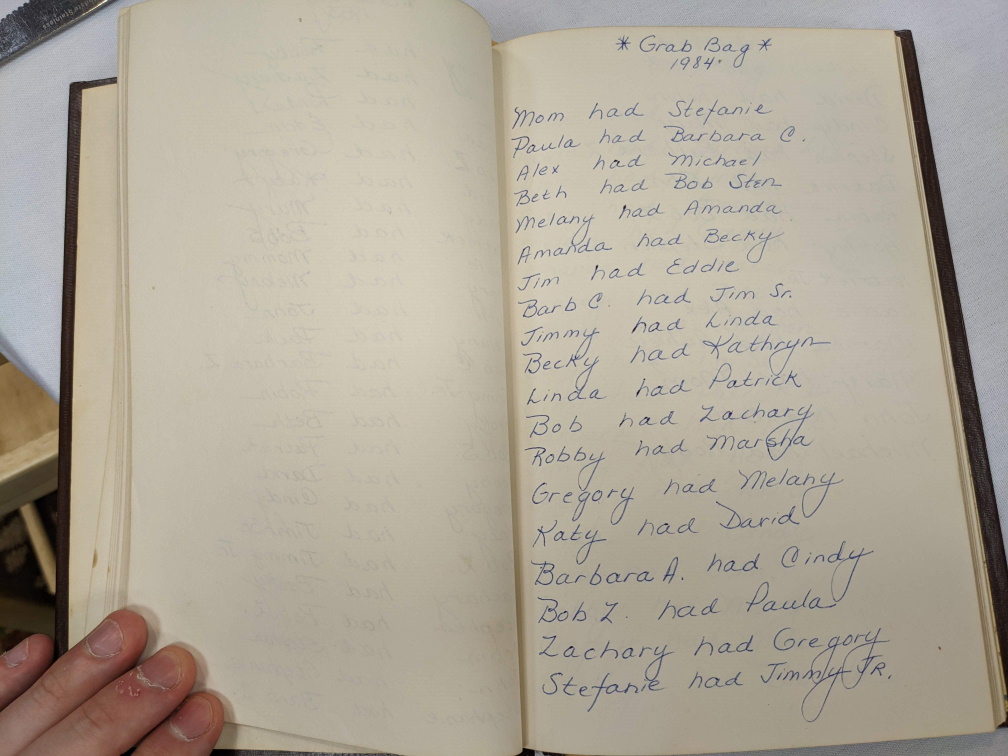 * Grab Bag *
1984.
Mom had Stefanie
Paula had Barbara C.
Alex had Michael
Beth had Bob Sten
Melany had Amanda
Amanda had Becky
Jim had Eddie
Barb C. had Jim Sr.
Jimmy had Linda
Becky had Kathryn
Linda had Patrick
Bob had Zachary
Robby had Marsha
Gregory had Melany
Katy had David
Barbara A. had Cindy
Bob Z. had Paula
Zachary had Gregory
Stefanie had Jimmy JR.